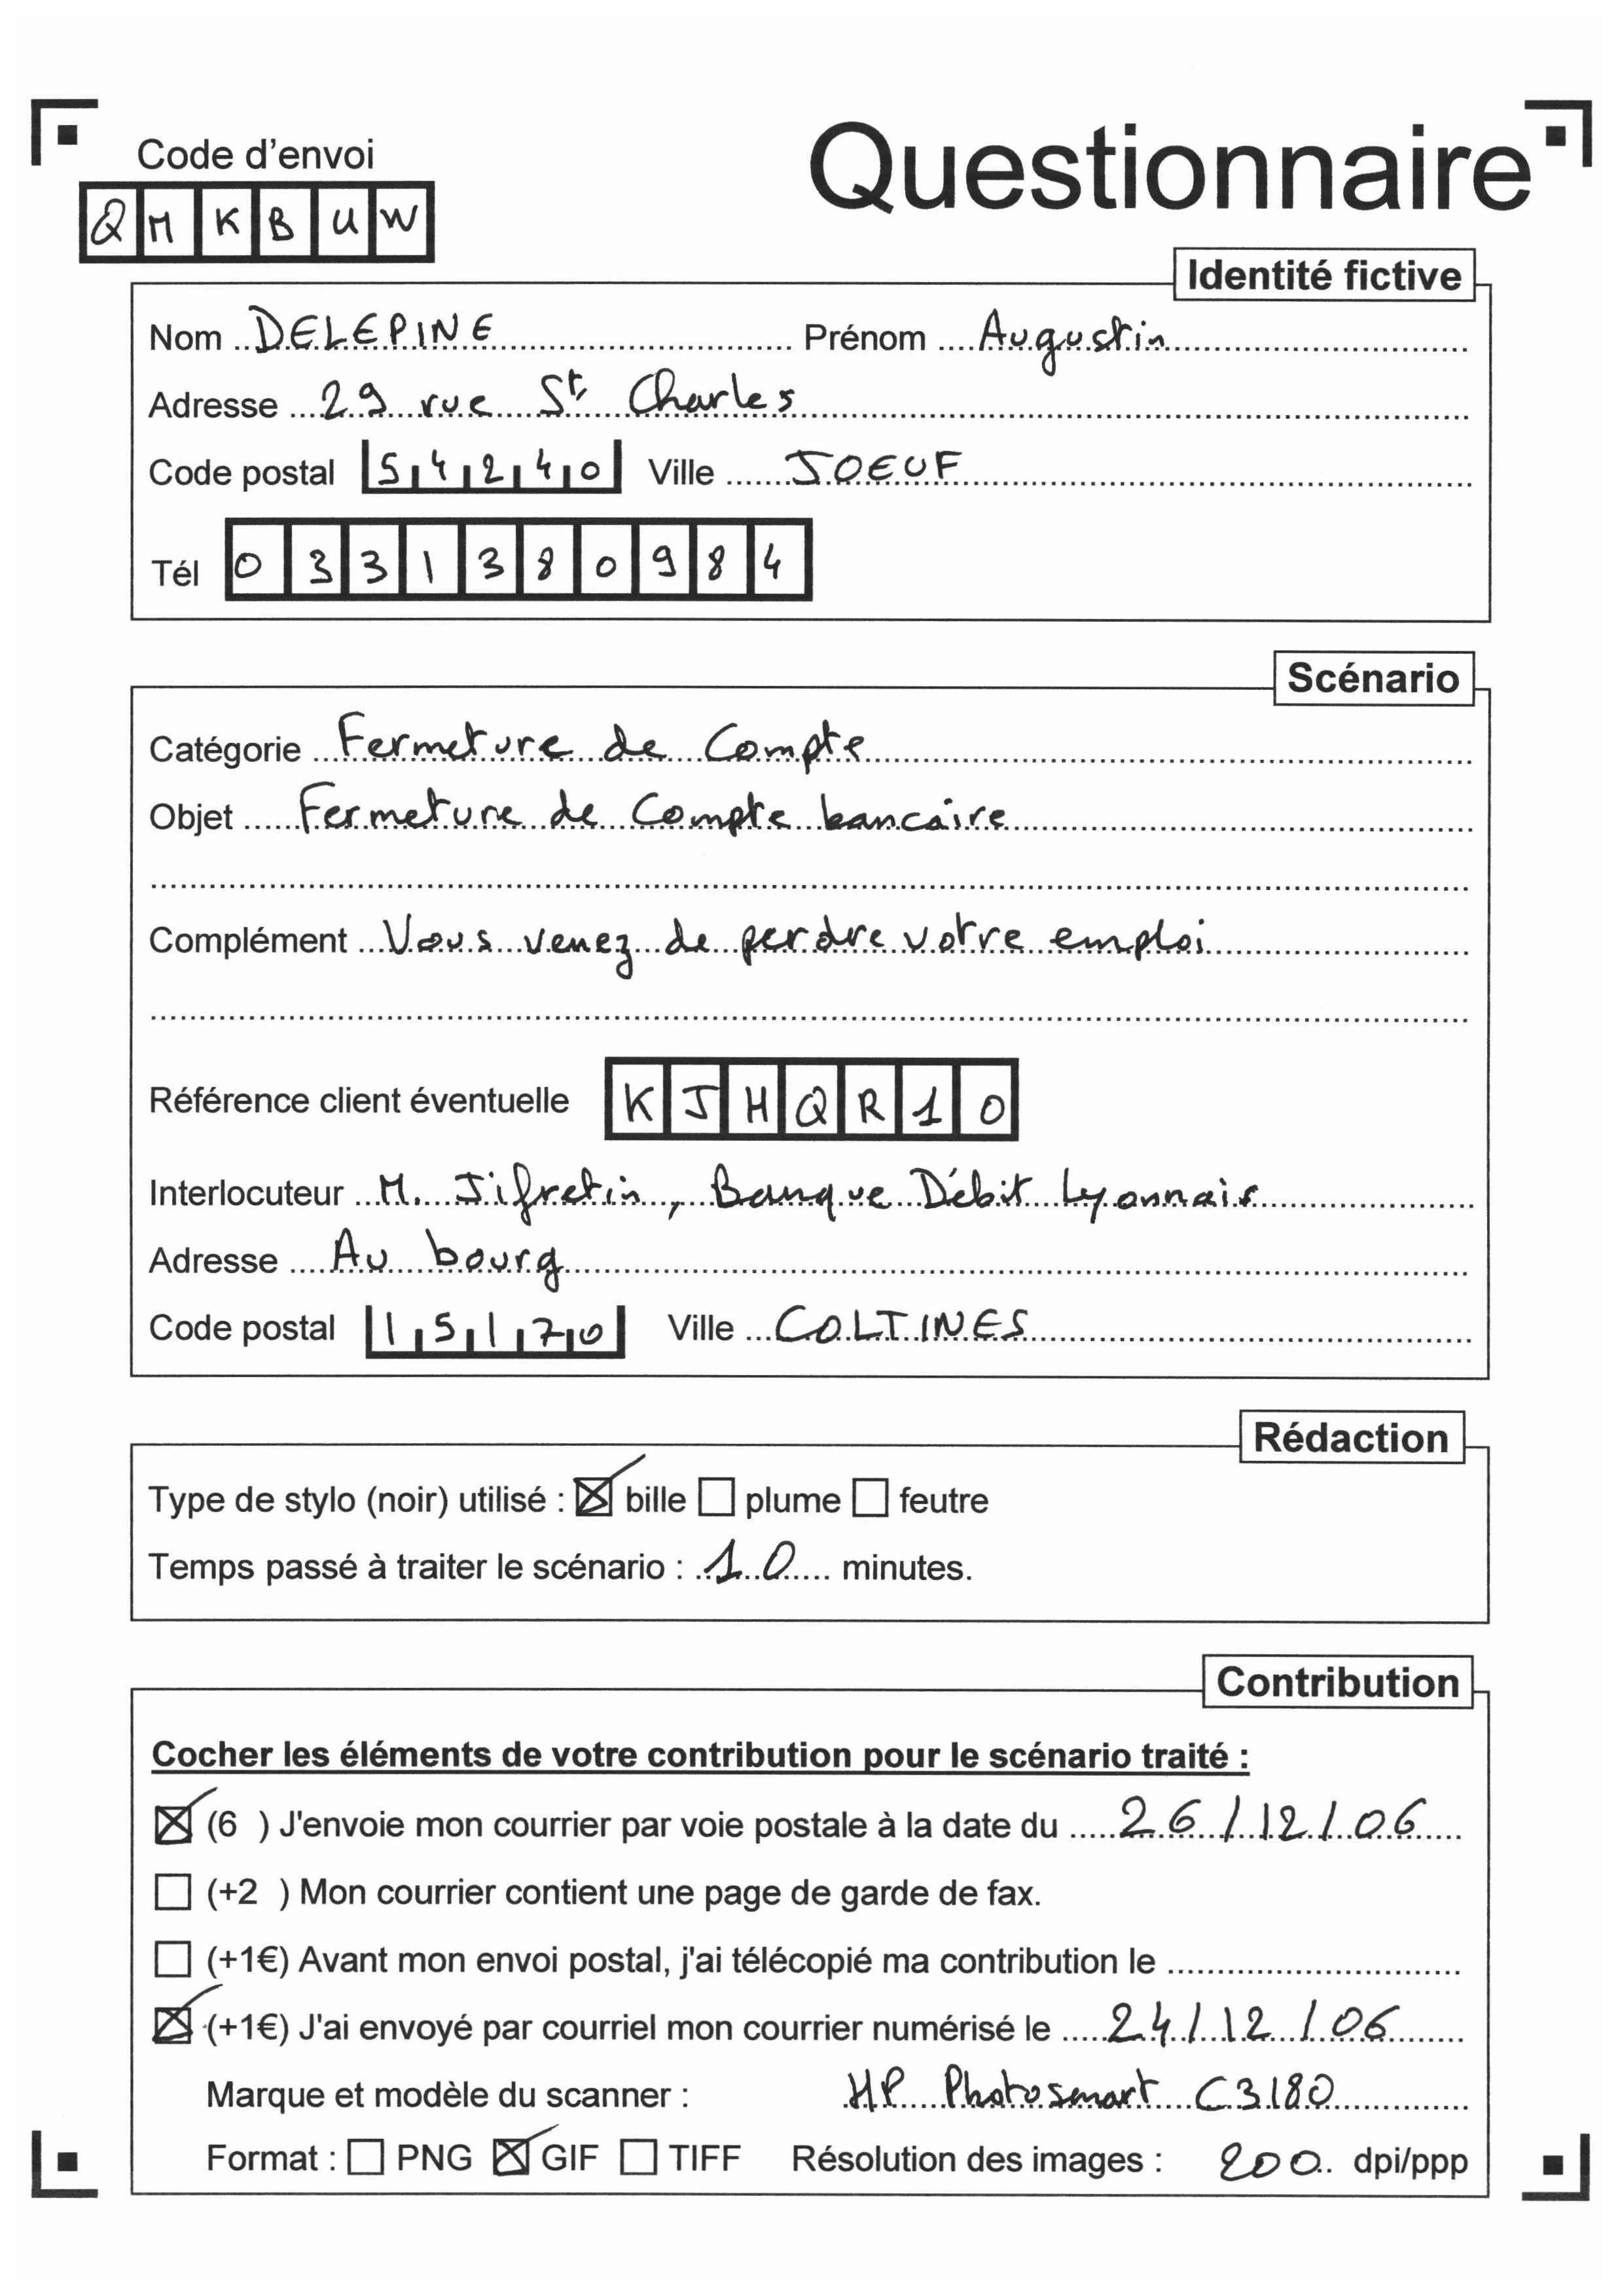 Code d'envoi
Questionnaire
Q M K B U W
Identité fictive
Nom DELEPINE Prénom Augustin
Adresse 29 rue St Charles
Code postal 54240 Ville JOEUF
Tél 0331380984
Scénario
Catégorie Fermeture de Compte
Objet Fermeture de Compte bancaire
Complément Vous venez de perdre votre emploi
Référence client éventuelle K J H Q R 1 0
Interlocuteur M. Jifretin, Banque Débit Lyonnais
Adresse Au bourg
Code postal 15170 Ville COLTINES
Rédaction
Type de stylo (noir) utilisé : ☒ bille ☐ plume ☐ feutre
Temps passé à traiter le scénario : 10 minutes.
Contribution
Cocher les éléments de votre contribution pour le scénario traité :
☒ (6 ) J'envoie mon courrier par voie postale à la date du 26/12/06
☐ (+2 ) Mon courrier contient une page de garde de fax.
☐ (+1€) Avant mon envoi postal, j'ai télécopié ma contribution le
☒ (+1€) J'ai envoyé par courriel mon courrier numérisé le 24/12/06
Marque et modèle du scanner : HP Photosmart C3180
Format : ☐ PNG ☒ GIF ☐ TIFF Résolution des images : 200 dpi/ppp